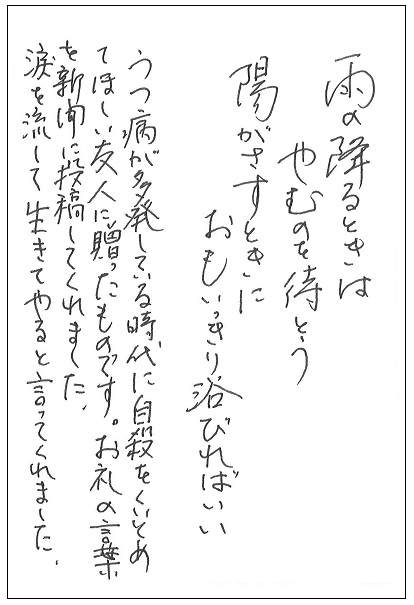 雨の降るときは
やむのを待とう
陽がさすときに
おもいっきり浴びればいい
うつ病が多発している時代に自殺をくいとめ
てほしい友人に贈ったものです。お礼の言葉
を新聞に投稿してくれました、
涙を流して生きてやると言ってくれました、